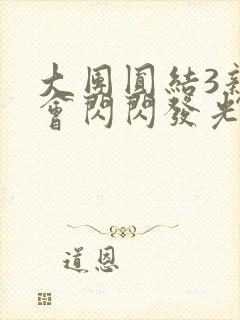 大團圓結3誰
會閃閃發光
道恩